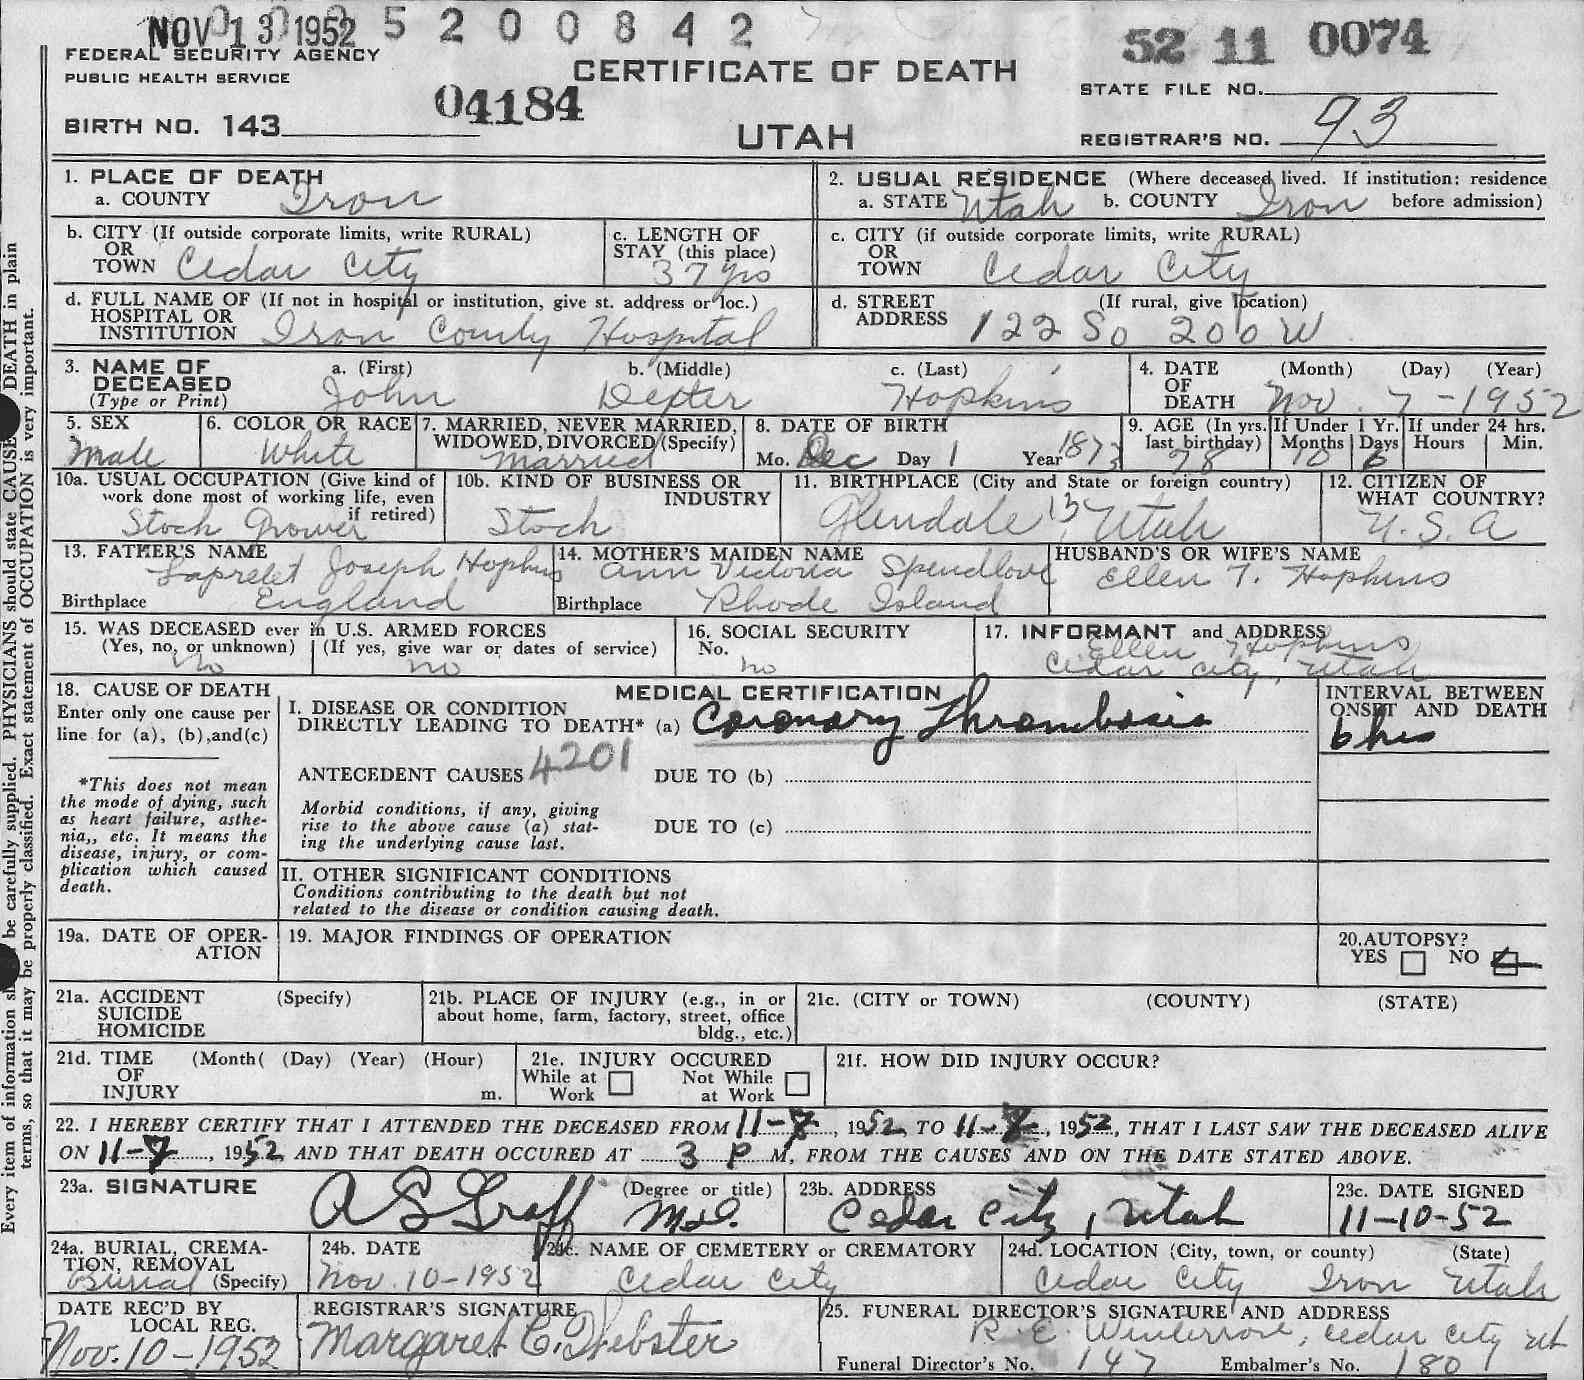 NOV 13 1952 5 2 0 0 8 4 2
52 11 0074
FEDERAL SECURITY AGENCY
PUBLIC HEALTH SERVICE
CERTIFICATE OF DEATH
STATE FILE NO.
04184
BIRTH NO. 143
UTAH
REGISTRAR'S NO. 93
1. PLACE OF DEATH
a. COUNTY Iron
2. USUAL RESIDENCE (Where deceased lived. If institution: residence
a. STATE Utah b. COUNTY Iron before admission)
b. CITY (If outside corporate limits, write RURAL)
OR
TOWN Cedar City
c. LENGTH OF
STAY (this place)
37 yrs
c. CITY (if outside corporate limits, write RURAL)
OR
TOWN Cedar City
d. FULL NAME OF (If not in hospital or institution, give st. address or loc.)
HOSPITAL OR
INSTITUTION Iron County Hospital
d. STREET (If rural, give location)
ADDRESS 122 So 200 W
3. NAME OF
DECEASED
(Type or Print)
a. (First) b. (Middle) c. (Last)
John Dexter Hopkins
4. DATE (Month) (Day) (Year)
OF
DEATH Nov. 7-1952
5. SEX
Male
6. COLOR OR RACE
White
7. MARRIED, NEVER MARRIED,
WIDOWED, DIVORCED (Specify)
Married
8. DATE OF BIRTH
Mo. Dec Day 1 Year 1873
9. AGE (In yrs.
last birthday)
78
If Under 1 Yr.
Months Days
10 6
If under 24 hrs.
Hours Min.
10a. USUAL OCCUPATION (Give kind of
work done most of working life, even
if retired)
Stock Grower
10b. KIND OF BUSINESS OR
INDUSTRY
Stock
11. BIRTHPLACE (City and State or foreign country)
Glendale 13 Utah
12. CITIZEN OF
WHAT COUNTRY?
U.S.A
13. FATHER'S NAME
Joseph Hopkins
Birthplace England
14. MOTHER'S MAIDEN NAME
Ann Victoria Spendlove
Birthplace Rhode Island
HUSBAND'S OR WIFE'S NAME
Ellen T. Hopkins
15. WAS DECEASED ever in U.S. ARMED FORCES
(Yes, no, or unknown) (If yes, give war or dates of service)
No no
16. SOCIAL SECURITY
No.
no
17. INFORMANT and ADDRESS
Ellen Hopkins
Cedar City, Utah
18. CAUSE OF DEATH
Enter only one cause per
line for (a), (b),and(c)
*This does not mean
the mode of dying, such
as heart failure, asthe-
nia,, etc. It means the
disease, injury, or com-
plication which caused
death.
MEDICAL CERTIFICATION
I. DISEASE OR CONDITION
DIRECTLY LEADING TO DEATH* (a) Coronary Thrombosis
ANTECEDENT CAUSES 4201 DUE TO (b)
Morbid conditions, if any, giving
rise to the above cause (a) stat-
ing the underlying cause last.
DUE TO (c)
II. OTHER SIGNIFICANT CONDITIONS
Conditions contributing to the death but not
related to the disease or condition causing death.
INTERVAL BETWEEN
ONSET AND DEATH
6 hrs
19a. DATE OF OPER-
ATION
19. MAJOR FINDINGS OF OPERATION
20. AUTOPSY?
YES NO
21a. ACCIDENT (Specify)
SUICIDE
HOMICIDE
21b. PLACE OF INJURY (e.g., in or
about home, farm, factory, street, office
bldg., etc.)
21c. (CITY or TOWN) (COUNTY) (STATE)
21d. TIME (Month( (Day) (Year) (Hour)
OF
INJURY m.
21e. INJURY OCCURED
While at Not While
Work at Work
21f. HOW DID INJURY OCCUR?
22. I HEREBY CERTIFY THAT I ATTENDED THE DECEASED FROM 11-7, 1952, TO 11-7, 1952, THAT I LAST SAW THE DECEASED ALIVE
ON 11-7, 1952 AND THAT DEATH OCCURED AT 3 P M, FROM THE CAUSES AND ON THE DATE STATED ABOVE.
23a. SIGNATURE (Degree or title)
A S Graff M.D.
23b. ADDRESS
Cedar City, Utah
23c. DATE SIGNED
11-10-52
24a. BURIAL, CREMA-
TION, REMOVAL
Burial (Specify)
24b. DATE
Nov. 10-1952
24c. NAME OF CEMETERY or CREMATORY
Cedar City
24d. LOCATION (City, town, or county) (State)
Cedar City Iron Utah
DATE REC'D BY
LOCAL REG.
Nov. 10-1952
REGISTRAR'S SIGNATURE
Margaret C. Webster
25. FUNERAL DIRECTOR'S SIGNATURE AND ADDRESS
R. E. Winterrose, Cedar City Ut
Funeral Director's No. 147 Embalmer's No. 180
DEATH in plain
be carefully supplied. PHYSICIANS should state CAUSE
Every item of information
terms, so that it may be properly classified. Exact statement of OCCUPATION is very important.